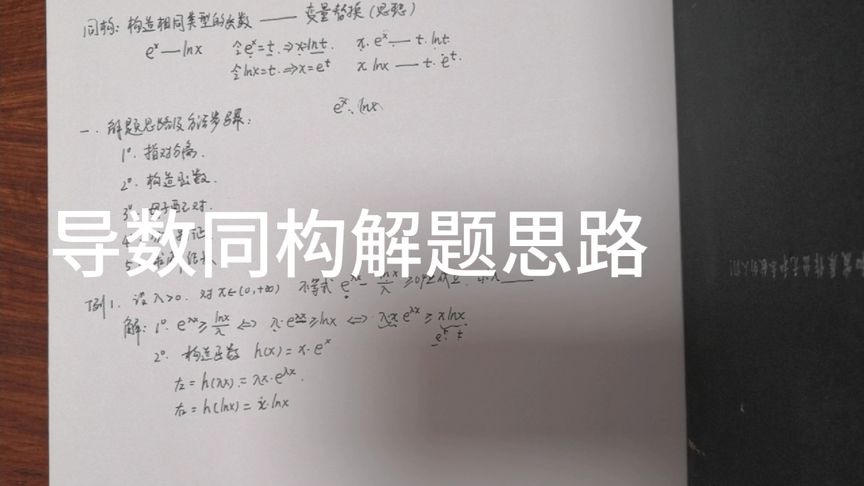 同构: 构造相同类型的函数 —— 变量替换(思想)
e^x — lnx 令e^x=t. ⇒x=lnt. x·e^x — t·lnt
令lnx=t. ⇒x=e^t x lnx — t·e^t.
e^x、lnx
一. 解题思路及方法步骤:
1°. 指对分离.
2°. 构造函数.
3°
4
5
导数同构解题思路
例1. 设λ>0. 对x∈(0,+∞) 不等式 e^λx - lnx/λ ≥0恒成立.
解: 1°. e^λx ≥ lnx/λ ⇔ λ·e^λx ≥ lnx ⇔ λx e^λx ≥ x lnx
e^t t
2°. 构造函数 h(x) = x·e^x
左 = h(λx) = λx·e^λx.
右 = h(lnx) = x·lnx